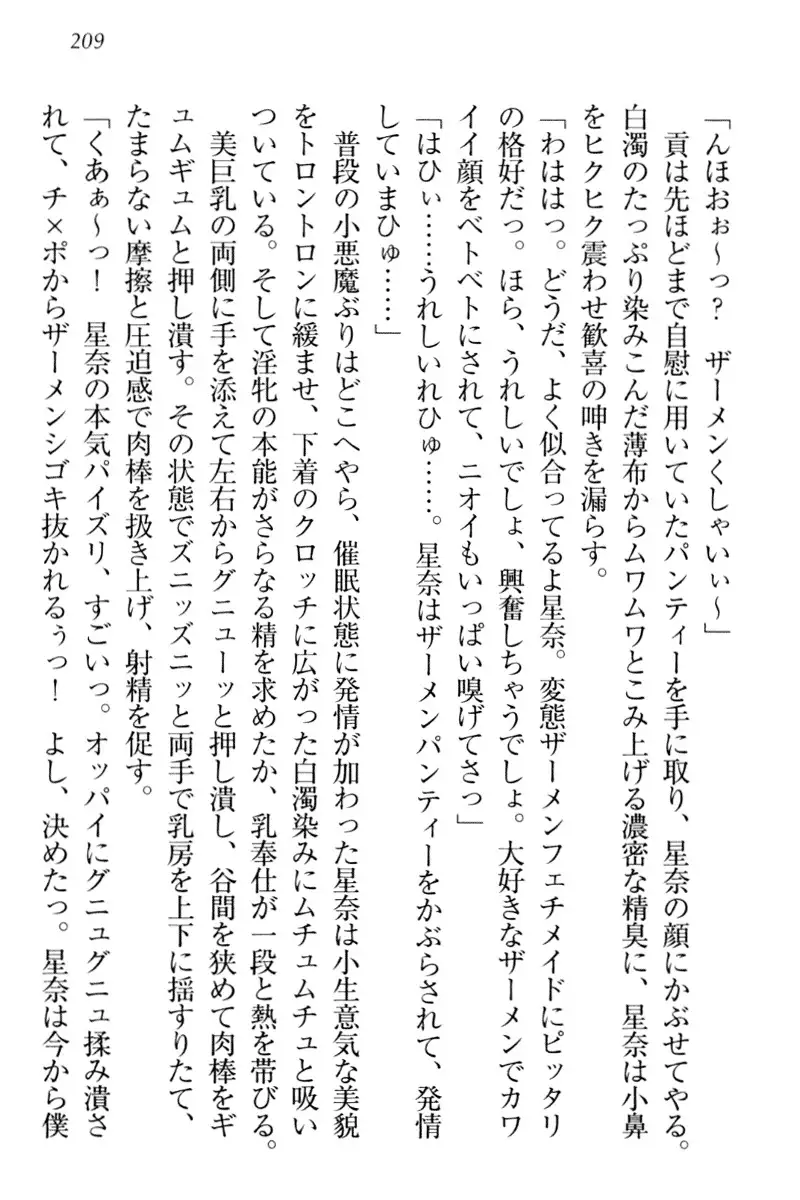 209
「んほおぉ～っ？　ザーメンくしゃいぃ～」
　貢は先ほどまで自慰に用いていたパンティーを手に取り、星奈の顔にかぶせてやる。
白濁のたっぷり染みこんだ薄布からムワムワとこみ上げる濃密な精臭に、星奈は小鼻
をヒクヒク震わせ歓喜の呻きを漏らす。
「わははっ。どうだ、よく似合ってるよ星奈。変態ザーメンフェチメイドにピッタリ
の格好だっ。ほら、うれしいでしょ、興奮しちゃうでしょ。大好きなザーメンでカワ
イイ顔をベトベトにされて、ニオイもいっぱい嗅げてさっ」
「はひぃ……うれしいれひゅ……。星奈はザーメンパンティーをかぶらされて、発情
していまひゅ……」
　普段の小悪魔ぶりはどこへやら、催眠状態に発情が加わった星奈は小生意気な美貌
をトロントロンに緩ませ、下着のクロッチに広がった白濁染みにムチュムチュと吸い
ついている。そして淫牝の本能がさらなる精を求めたか、乳奉仕が一段と熱を帯びる。
　美巨乳の両側に手を添えて左右からグニューッと押し潰し、谷間を狭めて肉棒をギ
ュムギュムと押し潰す。その状態でズニッズニッと両手で乳房を上下に揺すりたて、
たまらない摩擦と圧迫感で肉棒を扱き上げ、射精を促す。
「くあぁ～っ！　星奈の本気パイズリ、すごいっ。オッパイにグニュグニュ揉み潰さ
れて、チ×ポからザーメンシゴキ抜かれるぅっ！　よし、決めたっ。星奈は今から僕